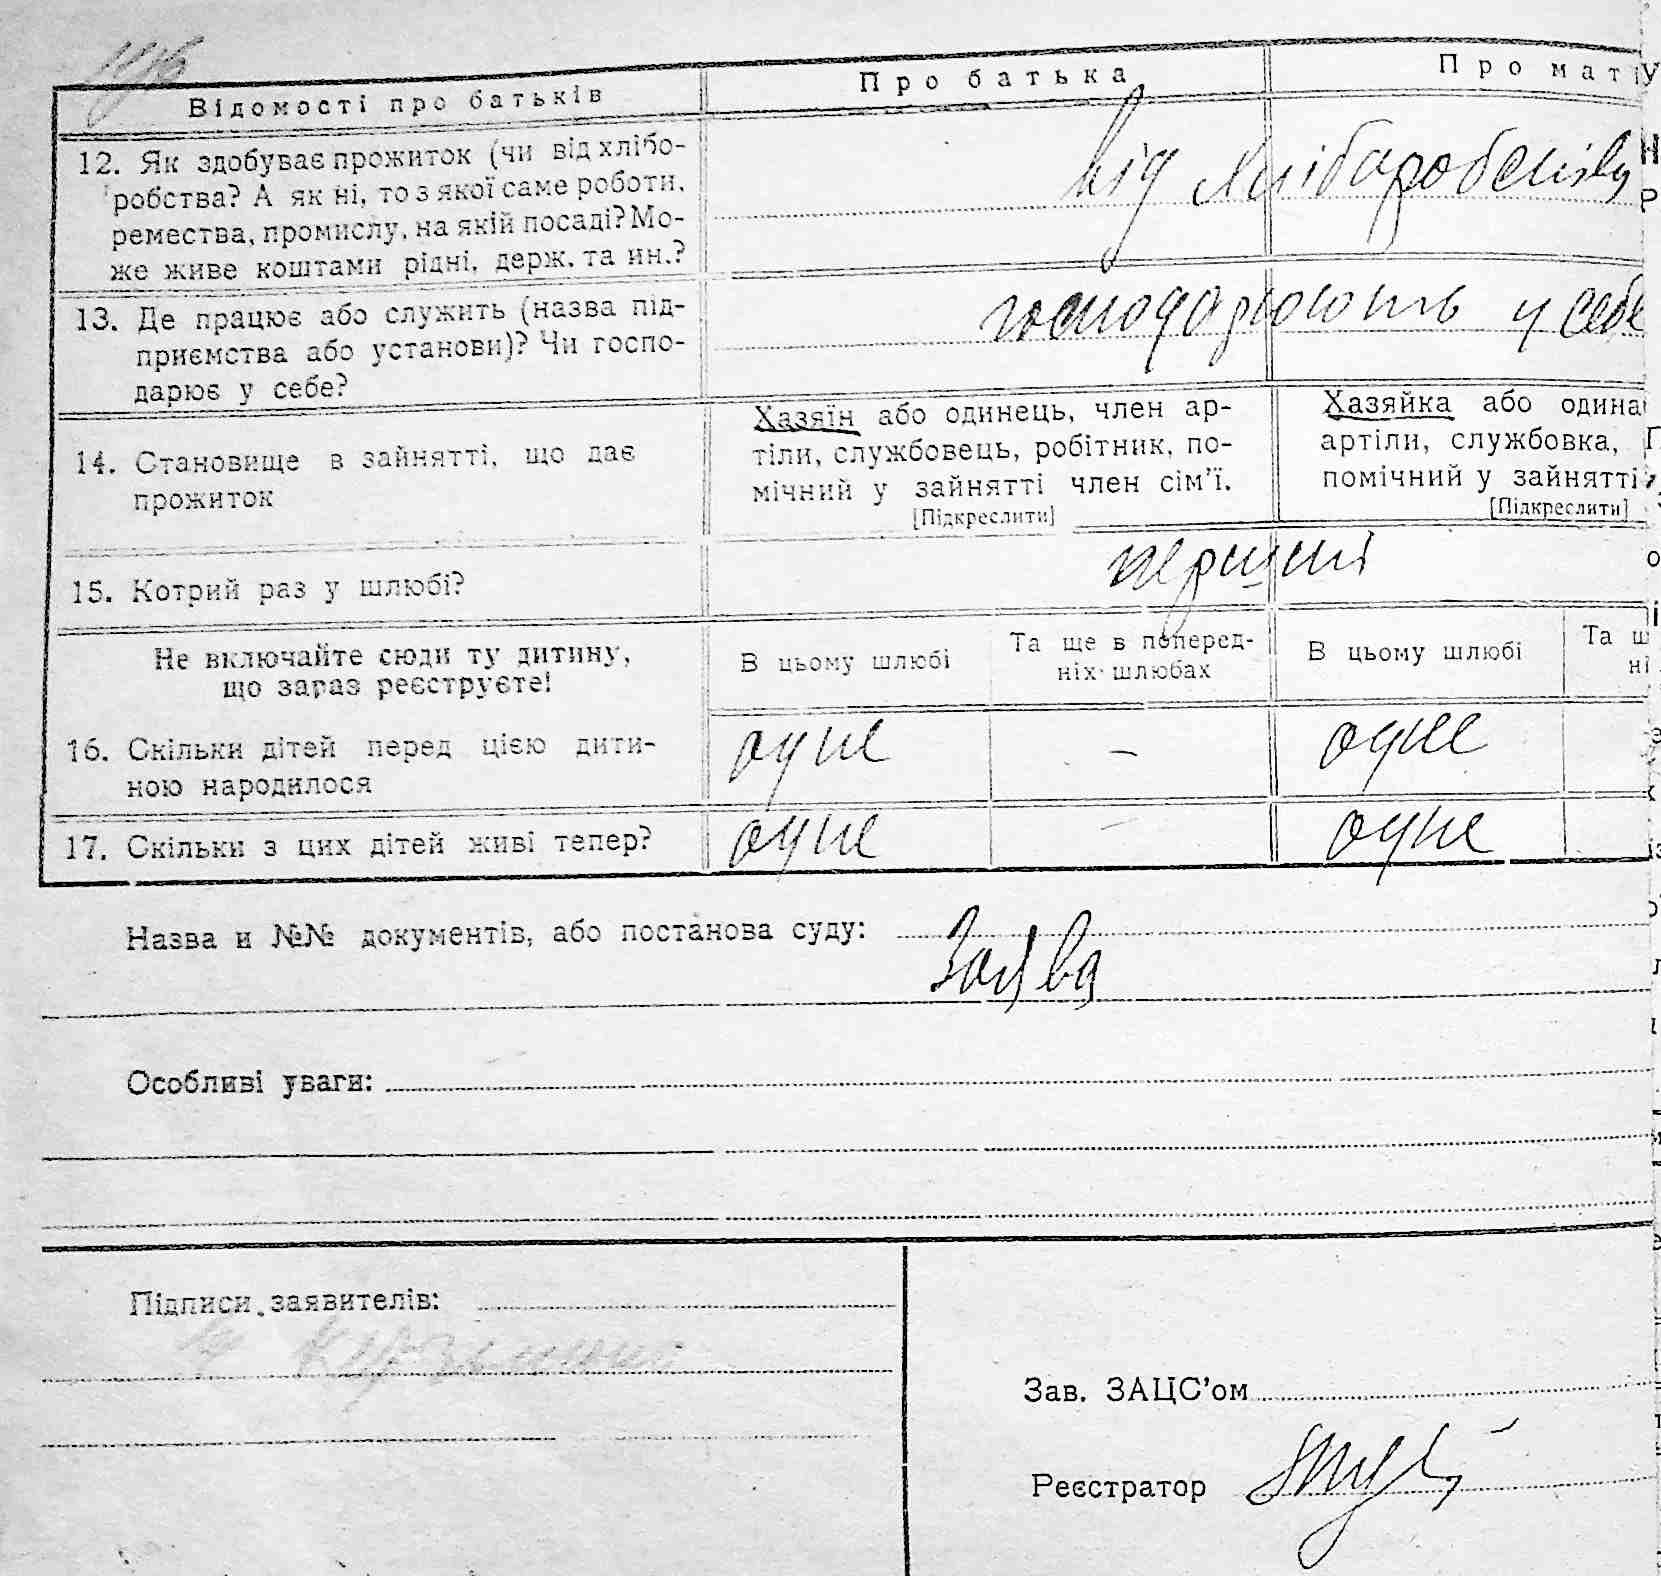 Відомості про батьків
Про батька
Про матір
12. Як здобуває прожиток (чи від хлібо-
робства? А як ні, то з якої саме роботи,
ремества, промислу, на якій посаді? Мо-
же живе коштами рідні, держ. та ин.?
від хлібаробства
13. Де працює або служить (назва під-
приємства або установи)? Чи госпо-
дарює у себе?
господарюють у себе
14. Становище в зайнятті, що дає
прожиток
Хазяїн або одинець, член ар-
тіли, службовець, робітник, по-
мічний у зайнятті член сім'ї.
[Підкреслити]
Хазяйка або одина
артіли, службовка,
помічний у зайнятті
[Підкреслити]
15. Котрий раз у шлюбі?
перший
Не включайте сюди ту дитину,
що зараз реєструєте!
В цьому шлюбі
Та ще в поперед-
ніх шлюбах
В цьому шлюбі
Та щ
ні
16. Скільки дітей перед цією дити-
ною народилося
одне
–
одне
17. Скільки з цих дітей живі тепер?
одне
–
одне
Назва и №№ документів, або постанова суду:
Заява
Особливі уваги:
Підписи заявителів:
Зав. ЗАЦС'ом
Реєстратор